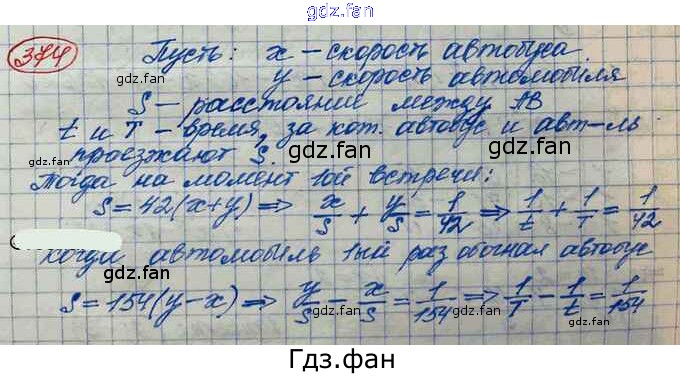 gdz.fan
374 Пусть: x – скорость автобуса
y – скорость автомобиля
S – расстояние между AB
t и T – время, за кот. автобус и авт-ль
проезжают S.
Тогда на момент 1ой встречи:
S = 42(x+y) ⇒ x/S + y/S = 1/42 ⇒ 1/t + 1/T = 1/42
Когда автомобиль 1ый раз обогнал автобус
S = 154(y-x) ⇒ y/S – x/S = 1/154 ⇒ 1/T – 1/t = 1/154
Гдз.фан